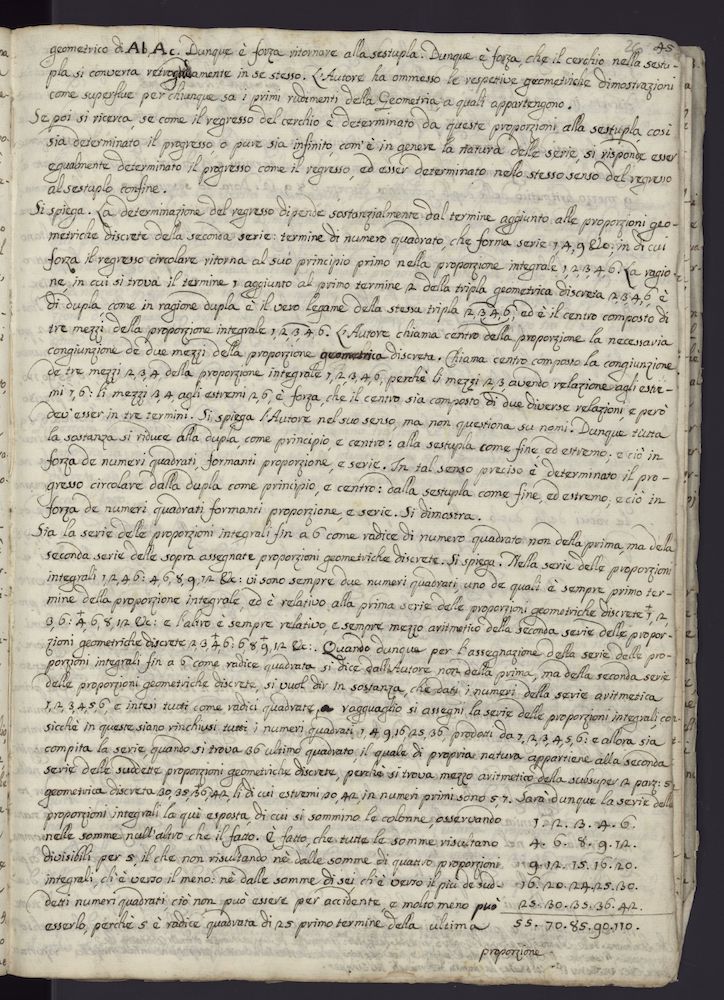 26 45
geometrico di Ab, Ac. Dunque è forza ritornare alla sestupla. Dunque è forza, che il cerchio nella sestu-
pla si converta retrogradamente in se stesso. L'Autore ha ommesso le respetive geometriche dimostrazioni
come superflue per chiunque sa i primi rudimenti della Geometria, a quali appartengono.
Se poi si ricerca, se come il regresso del cerchio è determinato da queste proporzioni alla sestupla, così
sia determinato il progresso o pure sia infinito, com'è in genere la natura delle serie, si risponde esser
egualmente determinato il progresso come il regresso, ed esser determinato nello stesso senso del regresso
al sestuplo confine.
Si spiega. La determinazione del regresso dipende sostanzialmente dal termine aggiunto alle proporzioni geo-
metriche discrete della seconda serie: termine di numero quadrato, che forma serie 1, 4, 9 &c; in di cui
forza il regresso circolare ritorna al suo principio primo nella proporzione integrale 1, 2, 3, 4, 6. La ragio-
ne, in cui si trova il termine 1 aggiunto al primo termine 2 della tripla geometrica discreta 2, 3, 4, 6, è
di dupla, come in ragione dupla è il vero legame della stessa tripla 2, 3, 4, 6; ed è il centro composto di
tre mezzi della proporzione integrale 1, 2, 3, 4, 6. L'Autore chiama centro della proporzione la necessaria
congiunzione de due mezzi della proporzione geometrica discreta. Chiama centro composto la congiunzione
de tre mezzi 2, 3, 4 della proporzione integrale 1, 2, 3, 4, 6, perchè li mezzi 2, 3 avendo relazione agli estre-
mi 1, 6: li mezzi 3, 4 agli estremi 2, 6, è forza, che il centro sia composto di due diverse relazioni e però
dev'esser in tre termini. Si spiega l'Autore nel suo senso, ma non questiona su nomi. Dunque tutta
la sostanza si riduce alla dupla come principio, e centro: alla sestupla come fine, ed estremo: e ciò in
forza de numeri quadrati formanti proporzione, e serie. In tal senso preciso è determinato il pro-
gresso circolare dalla dupla come principio, e centro: dalla sestupla come fine, ed estremo; e ciò in
forza de numeri quadrati formanti proporzione, e serie. Si dimostra.
Sia la serie delle proporzioni integrali fin a 6 come radice di numero quadrato non della prima, ma della
seconda serie delle sopra assegnate proporzioni geometriche discrete. Si spiega. Nella serie delle proporzioni
integrali 1, 2, 4, 6: 4, 6, 8, 9, 12 &c: vi sono sempre due numeri quadrati uno de quali è sempre primo ter-
mine della proporzione integrale, ed è relativo alla prima serie delle proporzioni geometriche discrete 1, 2,
3, 6: 4, 6, 8, 12 &c: e l'altro è sempre relativo e sempre mezzo aritmetico della seconda serie delle propor-
zioni geometriche discrete 2, 3, 4, 6: 6, 8, 9, 12 &c:. Quando dunque per l'assegnazione della serie delle pro-
porzioni integrali fin a 6 come radice quadrata si dice dall'Autore non della prima, ma della seconda serie
delle proporzioni geometriche discrete, si vuol dir in sostanza, che dati i numeri della serie aritmetica
1, 2, 3, 4, 5, 6, e intesi tutti come radici quadrate, a ragguaglio si assegni la serie delle proporzioni integrali co-
sicchè in queste siano rinchiusi tutti i numeri quadrati 1, 4, 9, 16, 25, 36, prodotti da 1, 2, 3, 4, 5, 6: e allora sia
compita la serie quando si trova 36 ultimo quadrato, il quale di propria natura appartiene alla seconda
serie delle suddette proporzioni geometriche discrete, perchè si trova mezzo aritmetico della subsuper 2 parz: 5,
geometrica discreta 30, 35, 36, 42, li di cui estremi 30, 42, in numeri primi sono 5, 7. Sarà dunque la serie delle
proporzioni integrali la qui esposta, di cui si sommino le colonne, osservando
nelle somme null'altro che il fatto. È fatto, che tutte le somme risultano
divisibili per 5, il che non risultando nè dalle somme di quattro proporzioni
integrali, ch'è verso il meno: nè dalle somme di sei ch'è verso il più de sud-
detti numeri quadrati ciò non può essere per accidente, e molto meno può
esserlo, perchè 5 è radice quadrata di 25 primo termine della ultima
1. 2. 3. 4. 6.
4. 6. 8. 9. 12.
9. 12. 15. 16. 20.
16. 20. 24. 25. 30.
25. 30. 35. 36. 42.
55. 70. 85. 90. 110.
proporzione